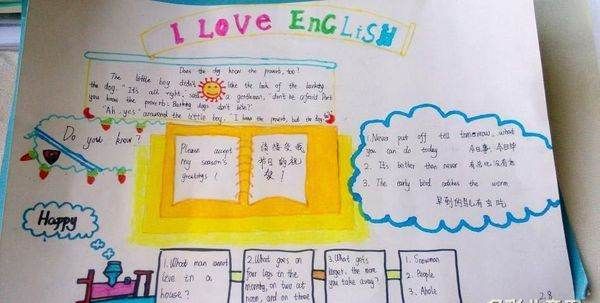 I LOVE ENGLISH
Does the dog know the proverb, too?
The little boy didn't like the look of the barking
the dog. "It's all right," said a gentleman, don't be afraid. Don't
you know the proverb: Barking dogs don't bite?"
"Ah, yes," answered the little boy. "I know the proverb, but the dog
Do you know?
Please accept
my season's
greetings!
请接受我
节日的祝
贺!
1. Never put off till tomorrow, what
you can do today 今日事,今日毕
2. It's better than never
3. The early bird catches the worm
早到的鸟有虫吃
Happy
1. What man cannot
live in a
house?
2. What goes on
four legs in the
morning, on two at
noon, and on three
3. What gets
larger, the more
you take away?
1. Snowman
2. People
3. A hole